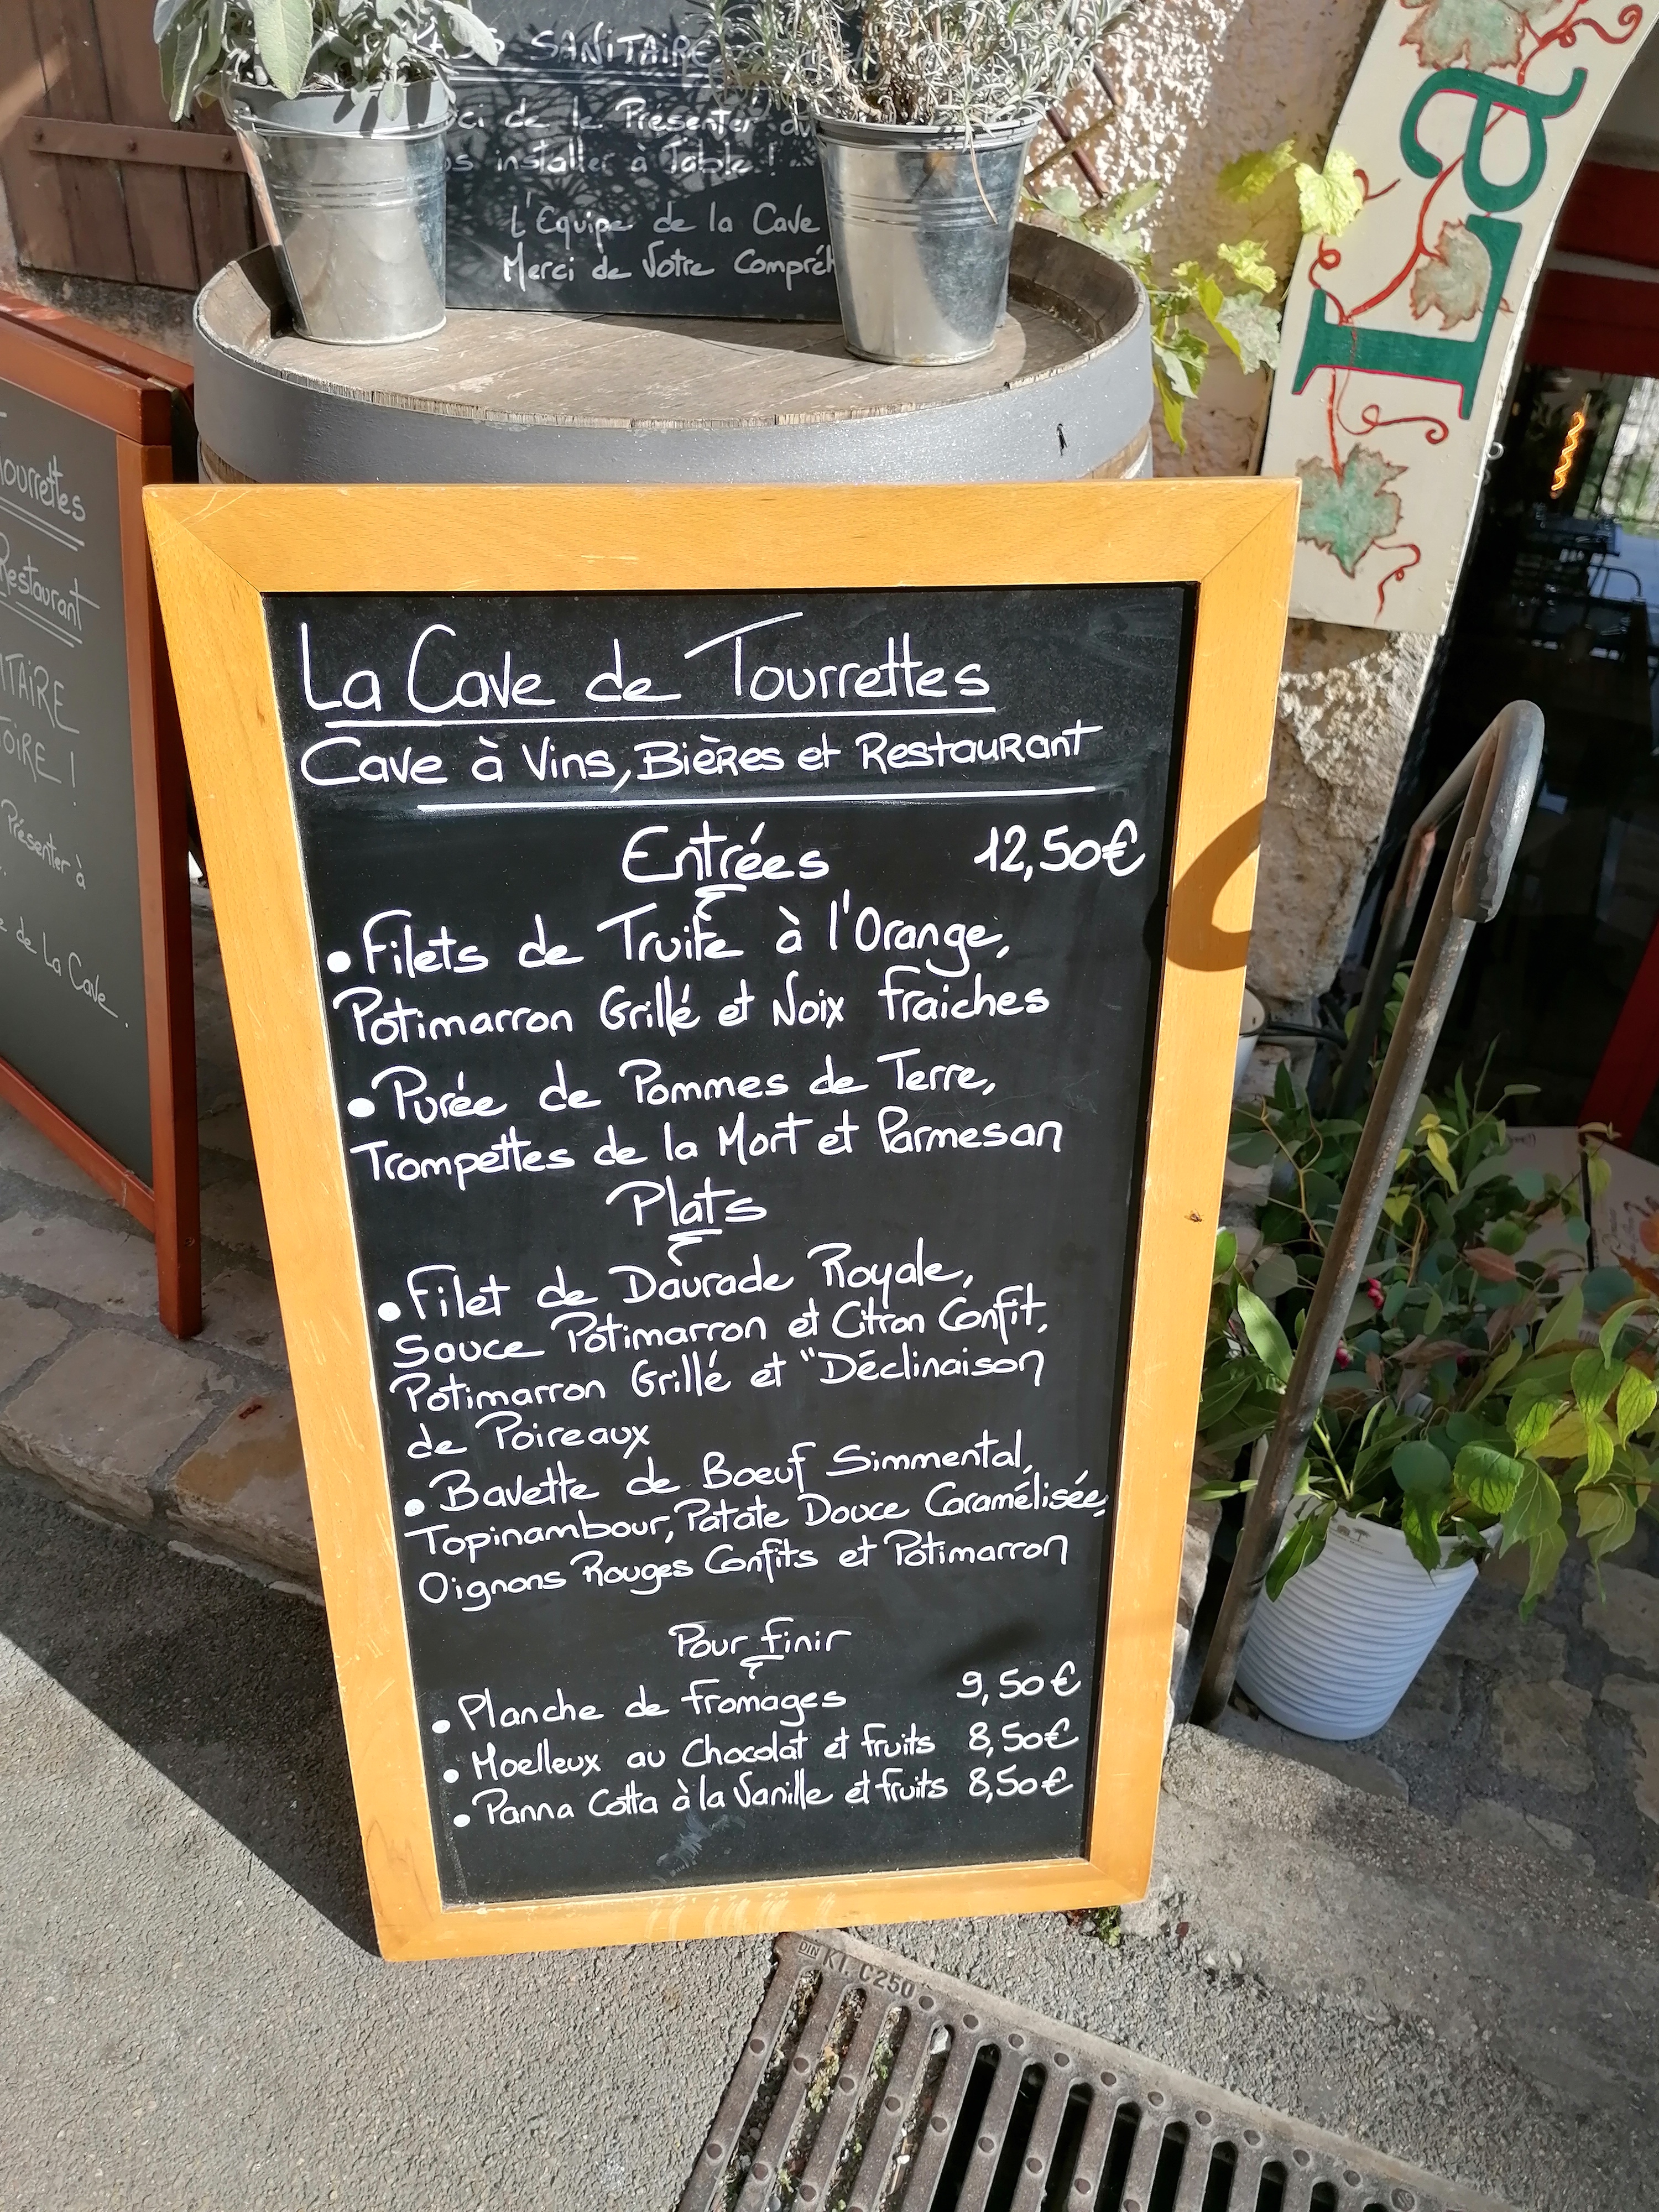 SANITAIRE
de le Présenter
installer à Table !
L'Equipe de la Cave
Merci de Votre
La
Tourrettes
Restaurant
Présenter à
de La Cave.
La Cave de Tourrettes
Cave à Vins, Bières et Restaurant
Entrées 12,50€
• Filets de Truite à l'Orange,
Potimarron Grillé et Noix fraiches
• Purée de Pommes de Terre,
Trompettes de la Mort et Parmesan
Plats
• Filet de Daurade Royale,
Sauce Potimarron et Citron Confit,
Potimarron Grillé et "Déclinaison
de Poireaux
• Bavette de Boeuf Simmental,
Topinambour, Patate Douce Caramélisée,
Oignons Rouges Confits et Potimarron
Pour finir
• Planche de fromages 9,50€
• Moelleux au Chocolat et fruits 8,50€
• Panna Cotta à la Vanille et fruits 8,50€
DIN Kl. C250